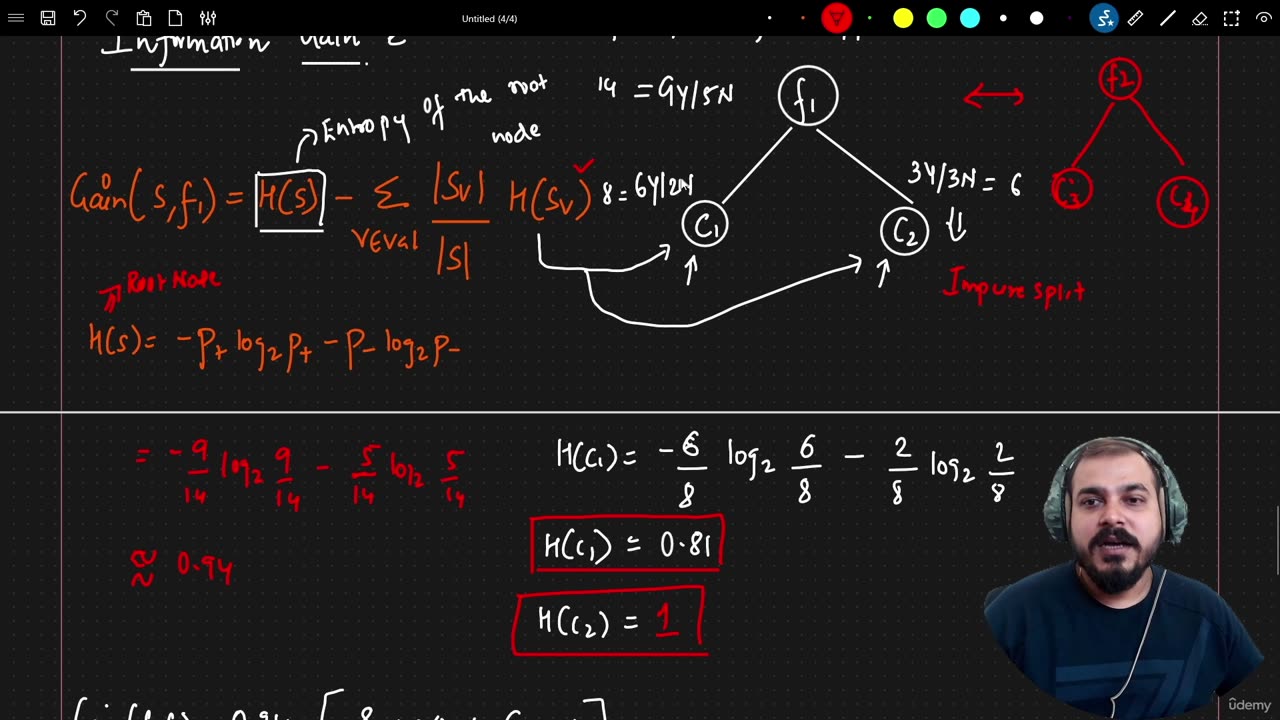 Untitled (4/4)
Information Gain
→ Entropy of the root node
14 = 9Y/5N
f1
f2
Gain(S,f1) = H(S) - Σ |Sv| / |S| H(Sv)
VEVal
8 = 6Y/2N
C1
3Y/3N = 6
C2
C3
C4
Impure split
Root Node
H(S) = -P+ log2 P+ - P- log2 P-
= -9/14 log2 9/14 - 5/14 log2 5/14
≈ 0.94
H(C1) = -6/8 log2 6/8 - 2/8 log2 2/8
H(C1) = 0.81
H(C2) = 1
ûdemy